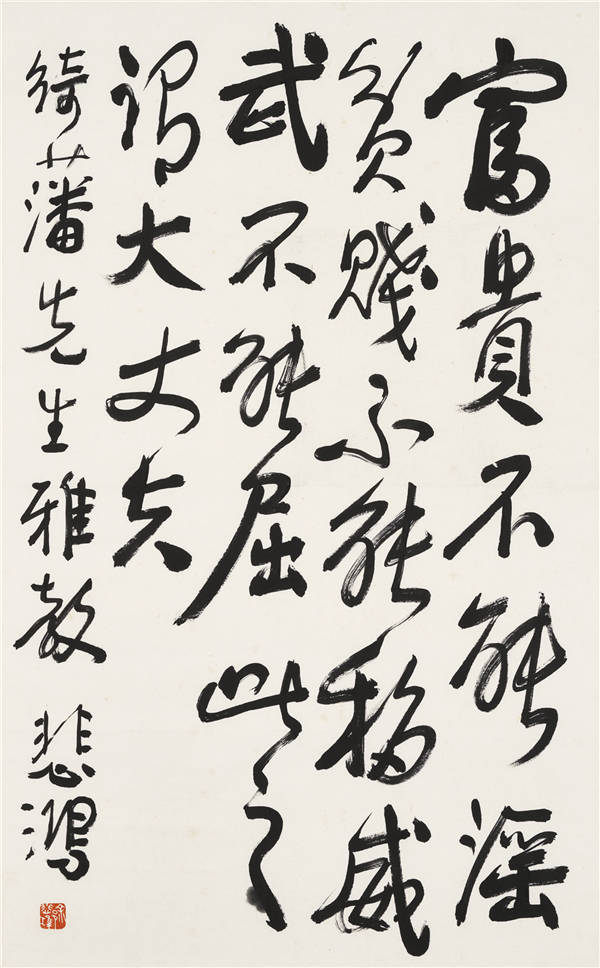 富貴不能淫
貧賤不能移威
武不能屈此之
謂大丈夫
綺藩先生雅教 悲鴻